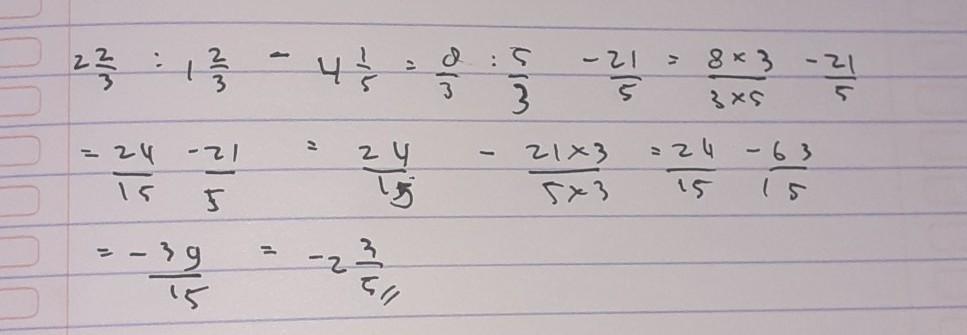 2 2/3 : 1 2/3 - 4 1/5 = 8/3 : 5/3 - 21/5 = 8 × 3 / 3 × 5 - 21/5
= 24/15 - 21/5 = 24/15 - 21×3 / 5×3 = 24/15 - 63/15
= -39/15 = -2 3/5 //